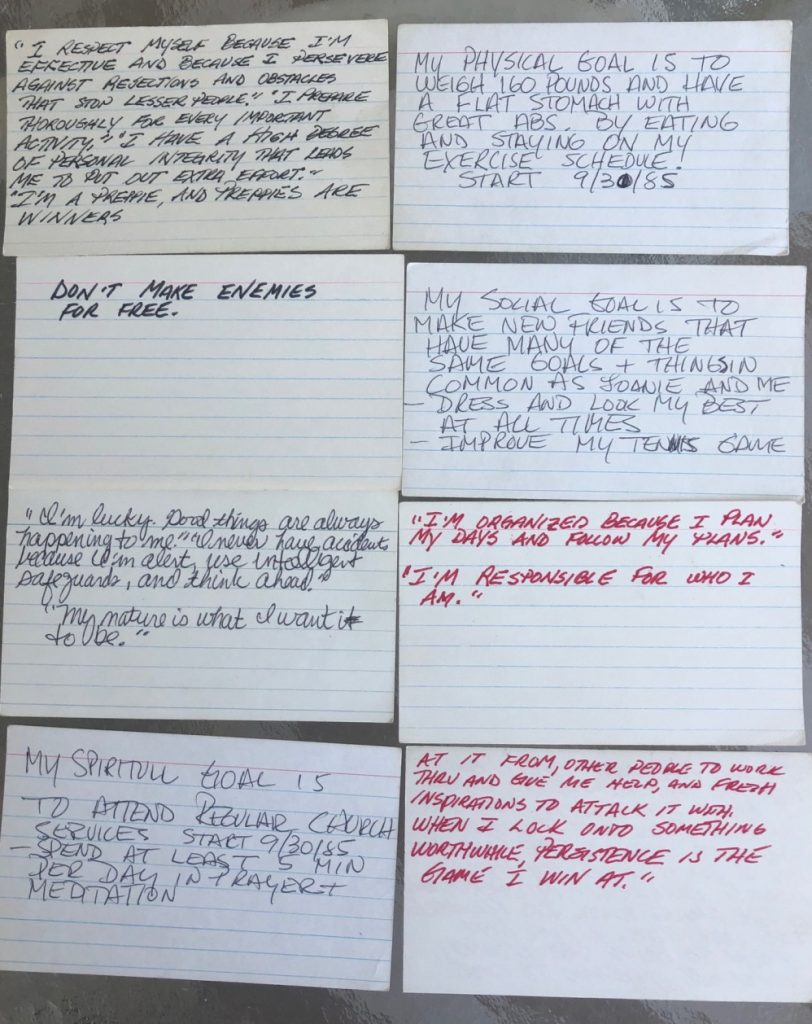 "I RESPECT MYSELF BECAUSE I'M
EFFECTIVE AND BECAUSE I PERSEVERE
AGAINST REJECTIONS AND OBSTACLES
THAT STOP LESSER PEOPLE." "I PREPARE
THOROUGHLY FOR EVERY IMPORTANT
ACTIVITY." "I HAVE A HIGH DEGREE
OF PERSONAL INTEGRITY THAT LEADS
ME TO PUT OUT EXTRA EFFORT."
"I'M A PREPPIE, AND PREPPIES ARE
WINNERS
MY PHYSICAL GOAL IS TO
WEIGH 160 POUNDS AND HAVE
A FLAT STOMACH WITH
GREAT ABS. BY EATING
AND STAYING ON MY
EXERCISE SCHEDULE!
START 9/30/85
DON'T MAKE ENEMIES
FOR FREE.
MY SOCIAL GOAL IS TO
MAKE NEW FRIENDS THAT
HAVE MANY OF THE
SAME GOALS + THINGS IN
COMMON AS JOANIE AND ME
- DRESS AND LOOK MY BEST
AT ALL TIMES
- IMPROVE MY TENNIS GAME
"I'm lucky. Good things are always
happening to me." "I never have accidents
because I'm alert, use intelligent
safeguards, and think ahead."
"My nature is what I want it
to be."
"I'M ORGANIZED BECAUSE I PLAN
MY DAYS AND FOLLOW MY PLANS."
"I'M RESPONSIBLE FOR WHO I
AM."
MY SPIRITULL GOAL IS
TO ATTEND REGULAR CHURCH
SERVICES START 9/30/85
- SPEND AT LEAST 5 MIN
PER DAY IN PRAYER +
MEDITATION
AT IT FROM, OTHER PEOPLE TO WORK
THRU AND GIVE ME HELP, AND FRESH
INSPIRATIONS TO ATTACK IT WITH.
WHEN I LOCK ONTO SOMETHING
WORTHWHILE, PERSISTENCE IS THE
GAME I WIN AT."